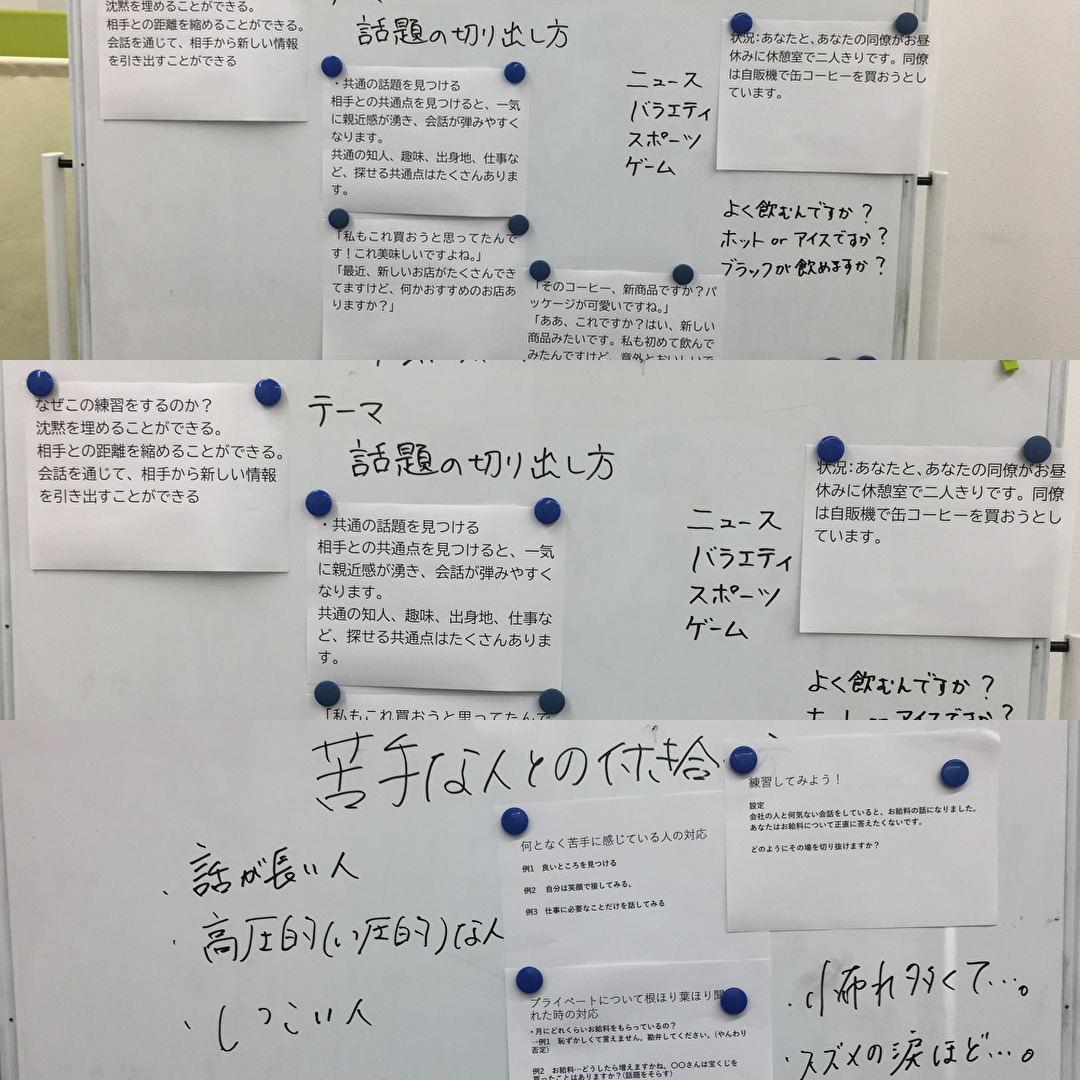 沈黙を埋めることができる。
相手との距離を縮めることができる。
会話を通じて、相手から新しい情報
を引き出すことができる
話題の切り出し方
・共通の話題を見つける
相手との共通点を見つけると、一気
に親近感が湧き、会話が弾みやすく
なります。
共通の知人、趣味、出身地、仕事な
ど、探せる共通点はたくさんありま
す。
「私もこれ買おうと思ってたんで
す!これ美味しいですよね。」
「最近、新しいお店がたくさんでき
てますけど、何かおすすめのお店あ
りますか?」
「そのコーヒー、新商品ですか?パ
ッケージが可愛いですね。」
「ああ、これですか?はい、新しい
商品みたいです。私も初めて飲んで
みたんですけど、意外とおいしいで
ニュース
バラエティ
スポーツ
ゲーム
状況:あなたと、あなたの同僚がお昼
休みに休憩室で二人きりです。同僚
は自販機で缶コーヒーを買おうとし
ています。
よく飲むんですか?
ホット or アイスですか?
ブラックが飲めますか?
なぜこの練習をするのか?
沈黙を埋めることができる。
相手との距離を縮めることができる。
会話を通じて、相手から新しい情報
を引き出すことができる
テーマ
話題の切り出し方
・共通の話題を見つける
相手との共通点を見つけると、一気
に親近感が湧き、会話が弾みやすく
なります。
共通の知人、趣味、出身地、仕事な
ど、探せる共通点はたくさんありま
す。
「私もこれ買おうと思ってたんで
ニュース
バラエティ
スポーツ
ゲーム
状況:あなたと、あなたの同僚がお昼
休みに休憩室で二人きりです。同僚
は自販機で缶コーヒーを買おうとし
ています。
よく飲むんですか?
ホット or アイスですか?
苦手な人との付き合い方
・話が長い人
・高圧的(い圧的)な人
・しつこい人
何となく苦手に感じている人の対応
例1 良いところを見つける
例2 自分は笑顔で接してみる。
例3 仕事に必要なことだけを話してみる
プライベートについて根ほり葉ほり聞
れた時の対応
・月にどれくらいお給料をもらっているの?
→例1 恥ずかしくて言えません。勘弁してください。(やんわり
否定)
例2 お給料…どうしたら増えますかね。〇〇さんは宝くじを
買ったことはありますか?(話題をそらす)
練習してみよう!
設定
会社の人と何気ない会話をしていると、お給料の話になりました。
あなたはお給料について正直に答えたくないです。
どのようにその場を切り抜けますか?
れ多くて…。
・スズメの涙ほど…。